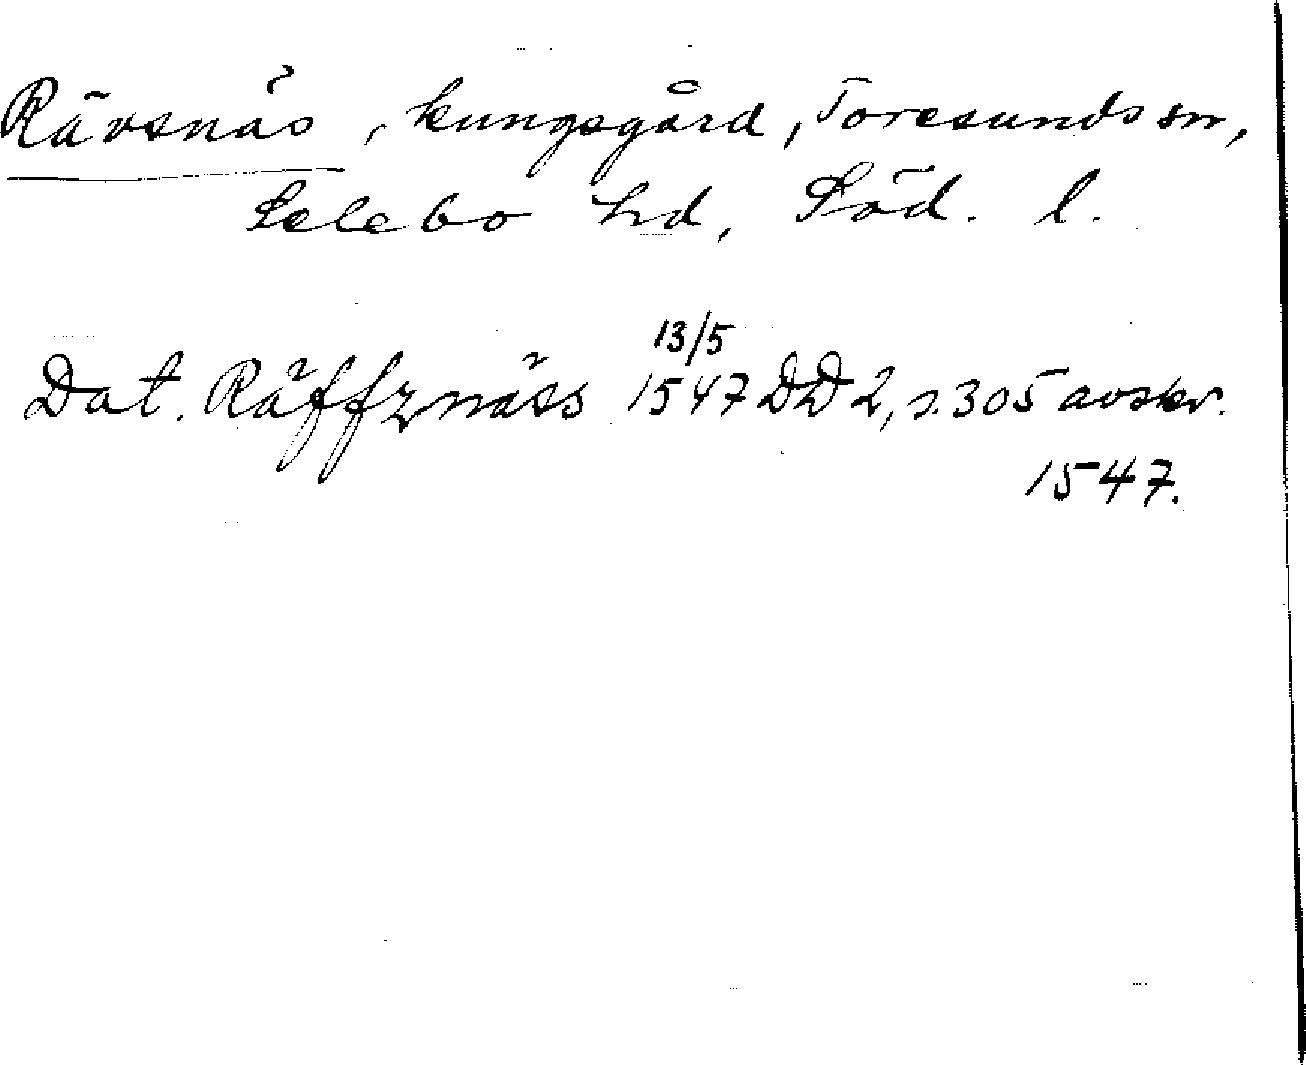 Rävsnäs, kungsgård, Toresunds sn,
Selebo hd, Söd. l.
13/5
Dat. Räffznäss 1547 DD 2, s. 305 avskr.
1547.